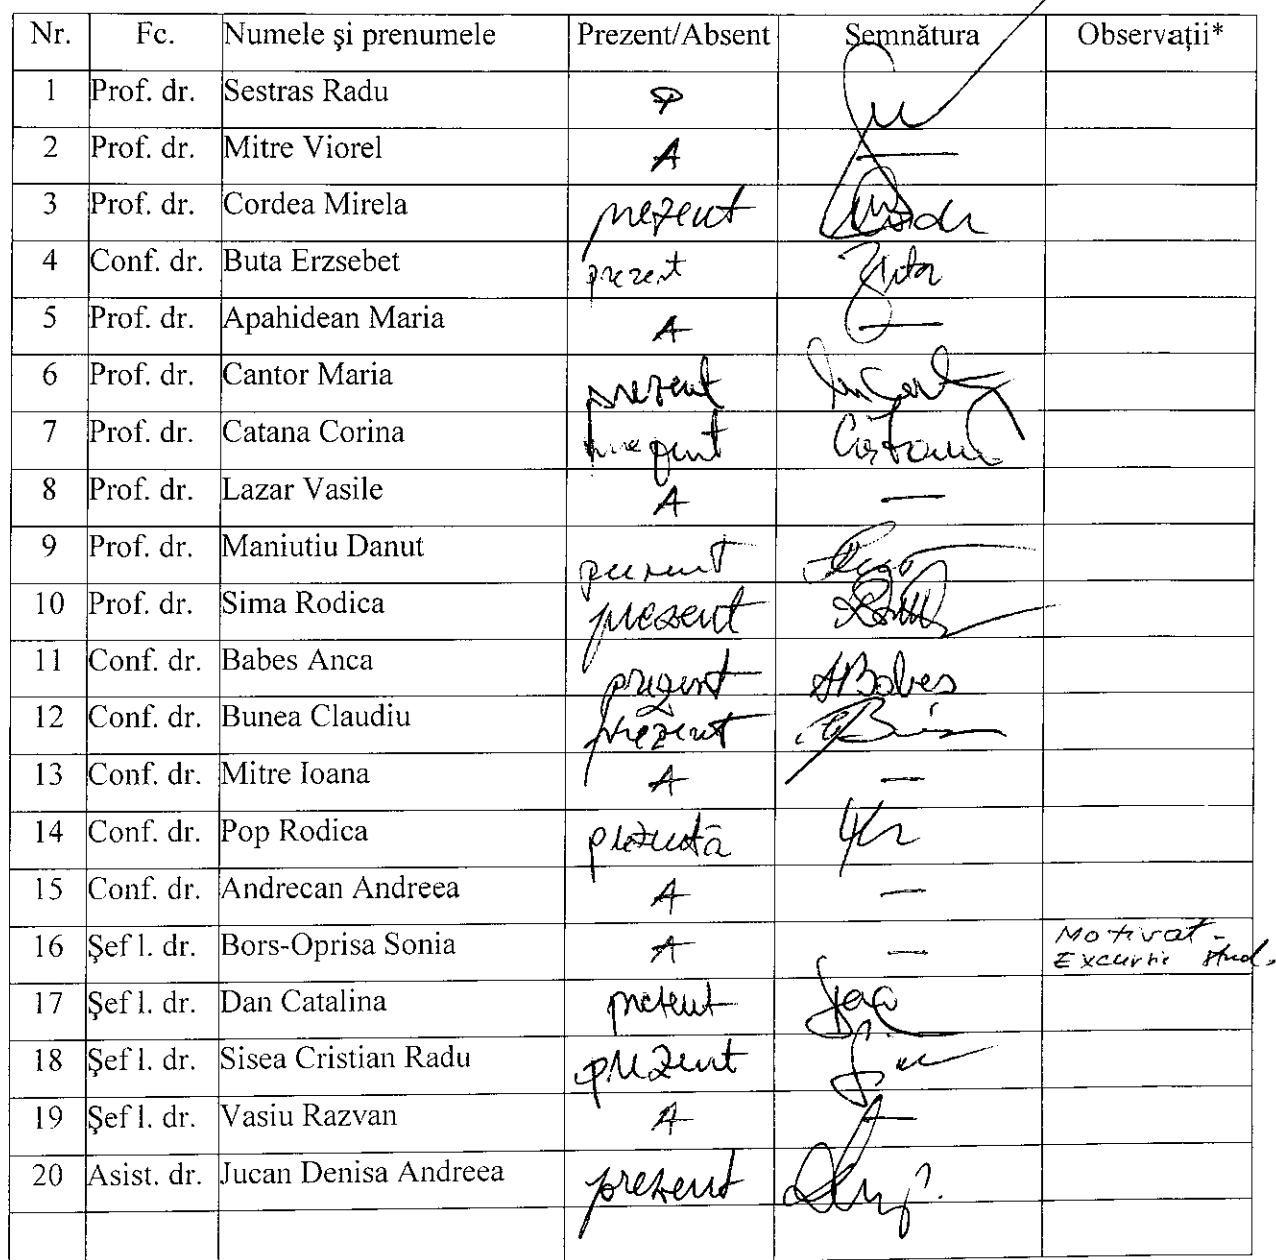 Nr. Fc. Numele şi prenumele Prezent/Absent Semnătura Observaţii*
1 Prof. dr. Sestras Radu P
2 Prof. dr. Mitre Viorel A —
3 Prof. dr. Cordea Mirela prezent
4 Conf. dr. Buta Erzsebet prezent Buta
5 Prof. dr. Apahidean Maria A —
6 Prof. dr. Cantor Maria prezent
7 Prof. dr. Catana Corina prezent Catana
8 Prof. dr. Lazar Vasile A —
9 Prof. dr. Maniutiu Danut prezent
10 Prof. dr. Sima Rodica prezent
11 Conf. dr. Babes Anca prezent ABabes
12 Conf. dr. Bunea Claudiu prezent
13 Conf. dr. Mitre Ioana A —
14 Conf. dr. Pop Rodica prezentă
15 Conf. dr. Andrecan Andreea A —
16 Şef l. dr. Bors-Oprisa Sonia A — Motivat -
Excursie stud.
17 Şef l. dr. Dan Catalina prezent
18 Şef l. dr. Sisea Cristian Radu prezent
19 Şef l. dr. Vasiu Razvan A —
20 Asist. dr. Jucan Denisa Andreea prezent